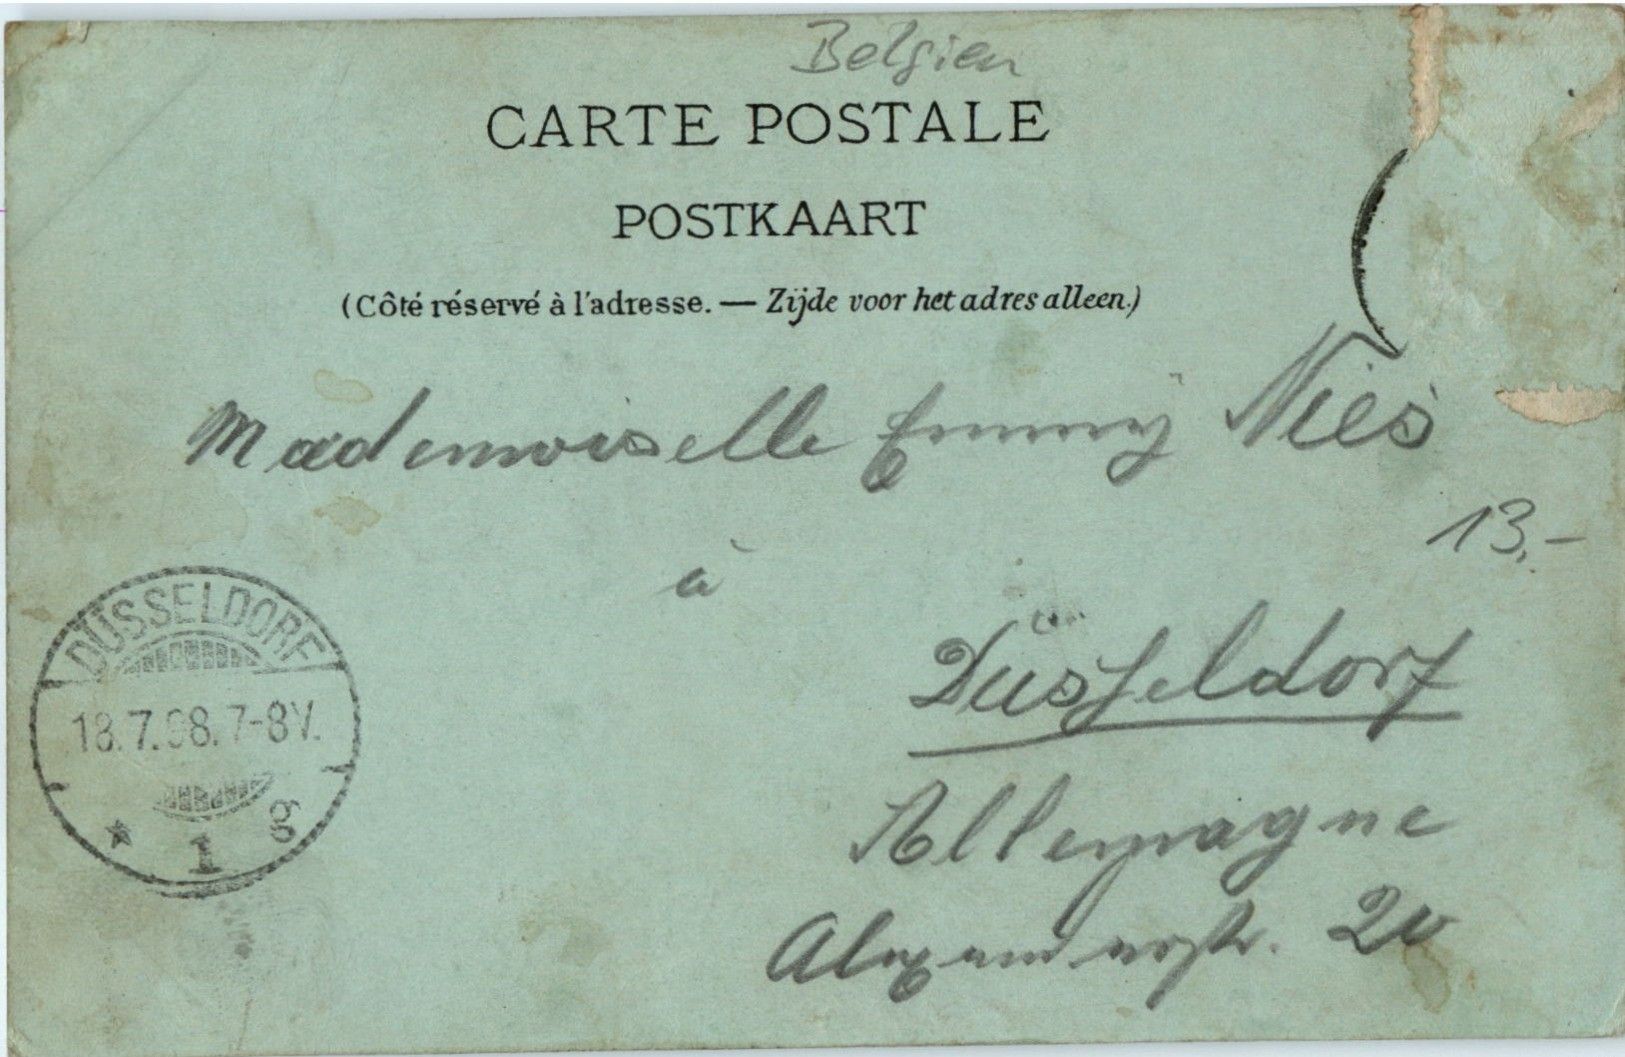 Belgien
CARTE POSTALE
POSTKAART
(Côté réservé à l'adresse. — Zijde voor het adres alleen.)
Mademoiselle Emmy Nies
13,-
à
Düsseldorf
Allemagne
Alexanderstr. 20
DÜSSELDORF
18.7.98.7-8V.
* 1 g